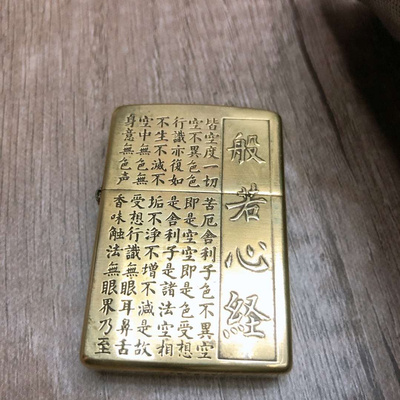 般若心経
皆空度一切苦厄舎利子色不異空
空不異色色即是空空即是色受想
行識亦復如是舎利子是諸法空相
不生不滅不垢不淨不増不減是故
空中無色無受想行識無眼耳鼻舌
身意無色声香味触法無眼界乃至